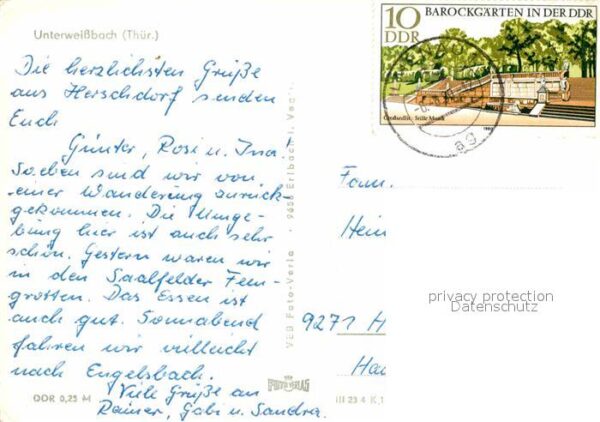 Unterweißbach (Thür.)
Die herzlichsten Grüße
aus Herschdorf senden
Euch
Günter, Rosi u. Ina!
Soeben sind wir von
einer Wanderung zurück-
gekommen. Die Umge-
bung hier ist auch sehr
schön. Gestern waren wir
in den Saalfelder Feen-
grotten. Das Essen ist
auch gut. Sonnabend
fahren wir vielleicht
nach Engelsbach.
Viele Grüße an
Rainer, Gabi u. Sandra.
DDR 0,25 M
VEB Foto-Verlag · 9659 Erlbach i. Vogtl.
FOTO-VERLAG
10 BAROCKGÄRTEN IN DER DDR
DDR
Großsedlitz, Stille Musik
1980
ag
Fam.
Hein
9271 H
Hau
privacy protection
Datenschutz
III 23 4 K 1